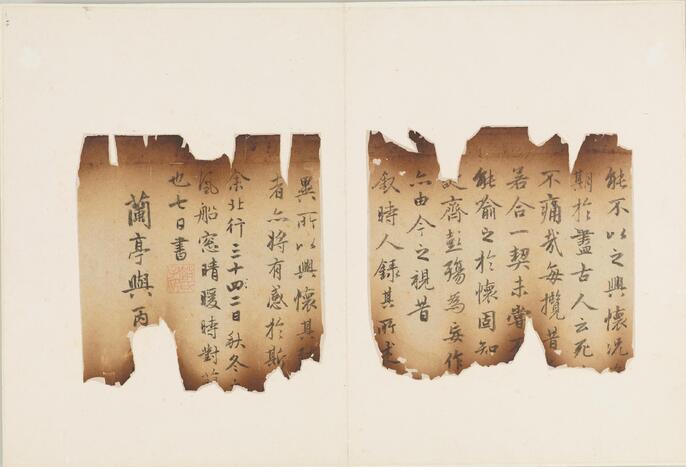 能不以之興懷况
期於盡古人云死
不痛哉每攬昔
若合一契未嘗不
能喻之於懷固知
齊彭殤為妄作
亦由今之視昔
敘時人錄其所述
異所以興懷其致
者亦將有感於斯
余北行三十四二日秋冬
風船窓晴暖時對
也七日書
蘭亭與丙